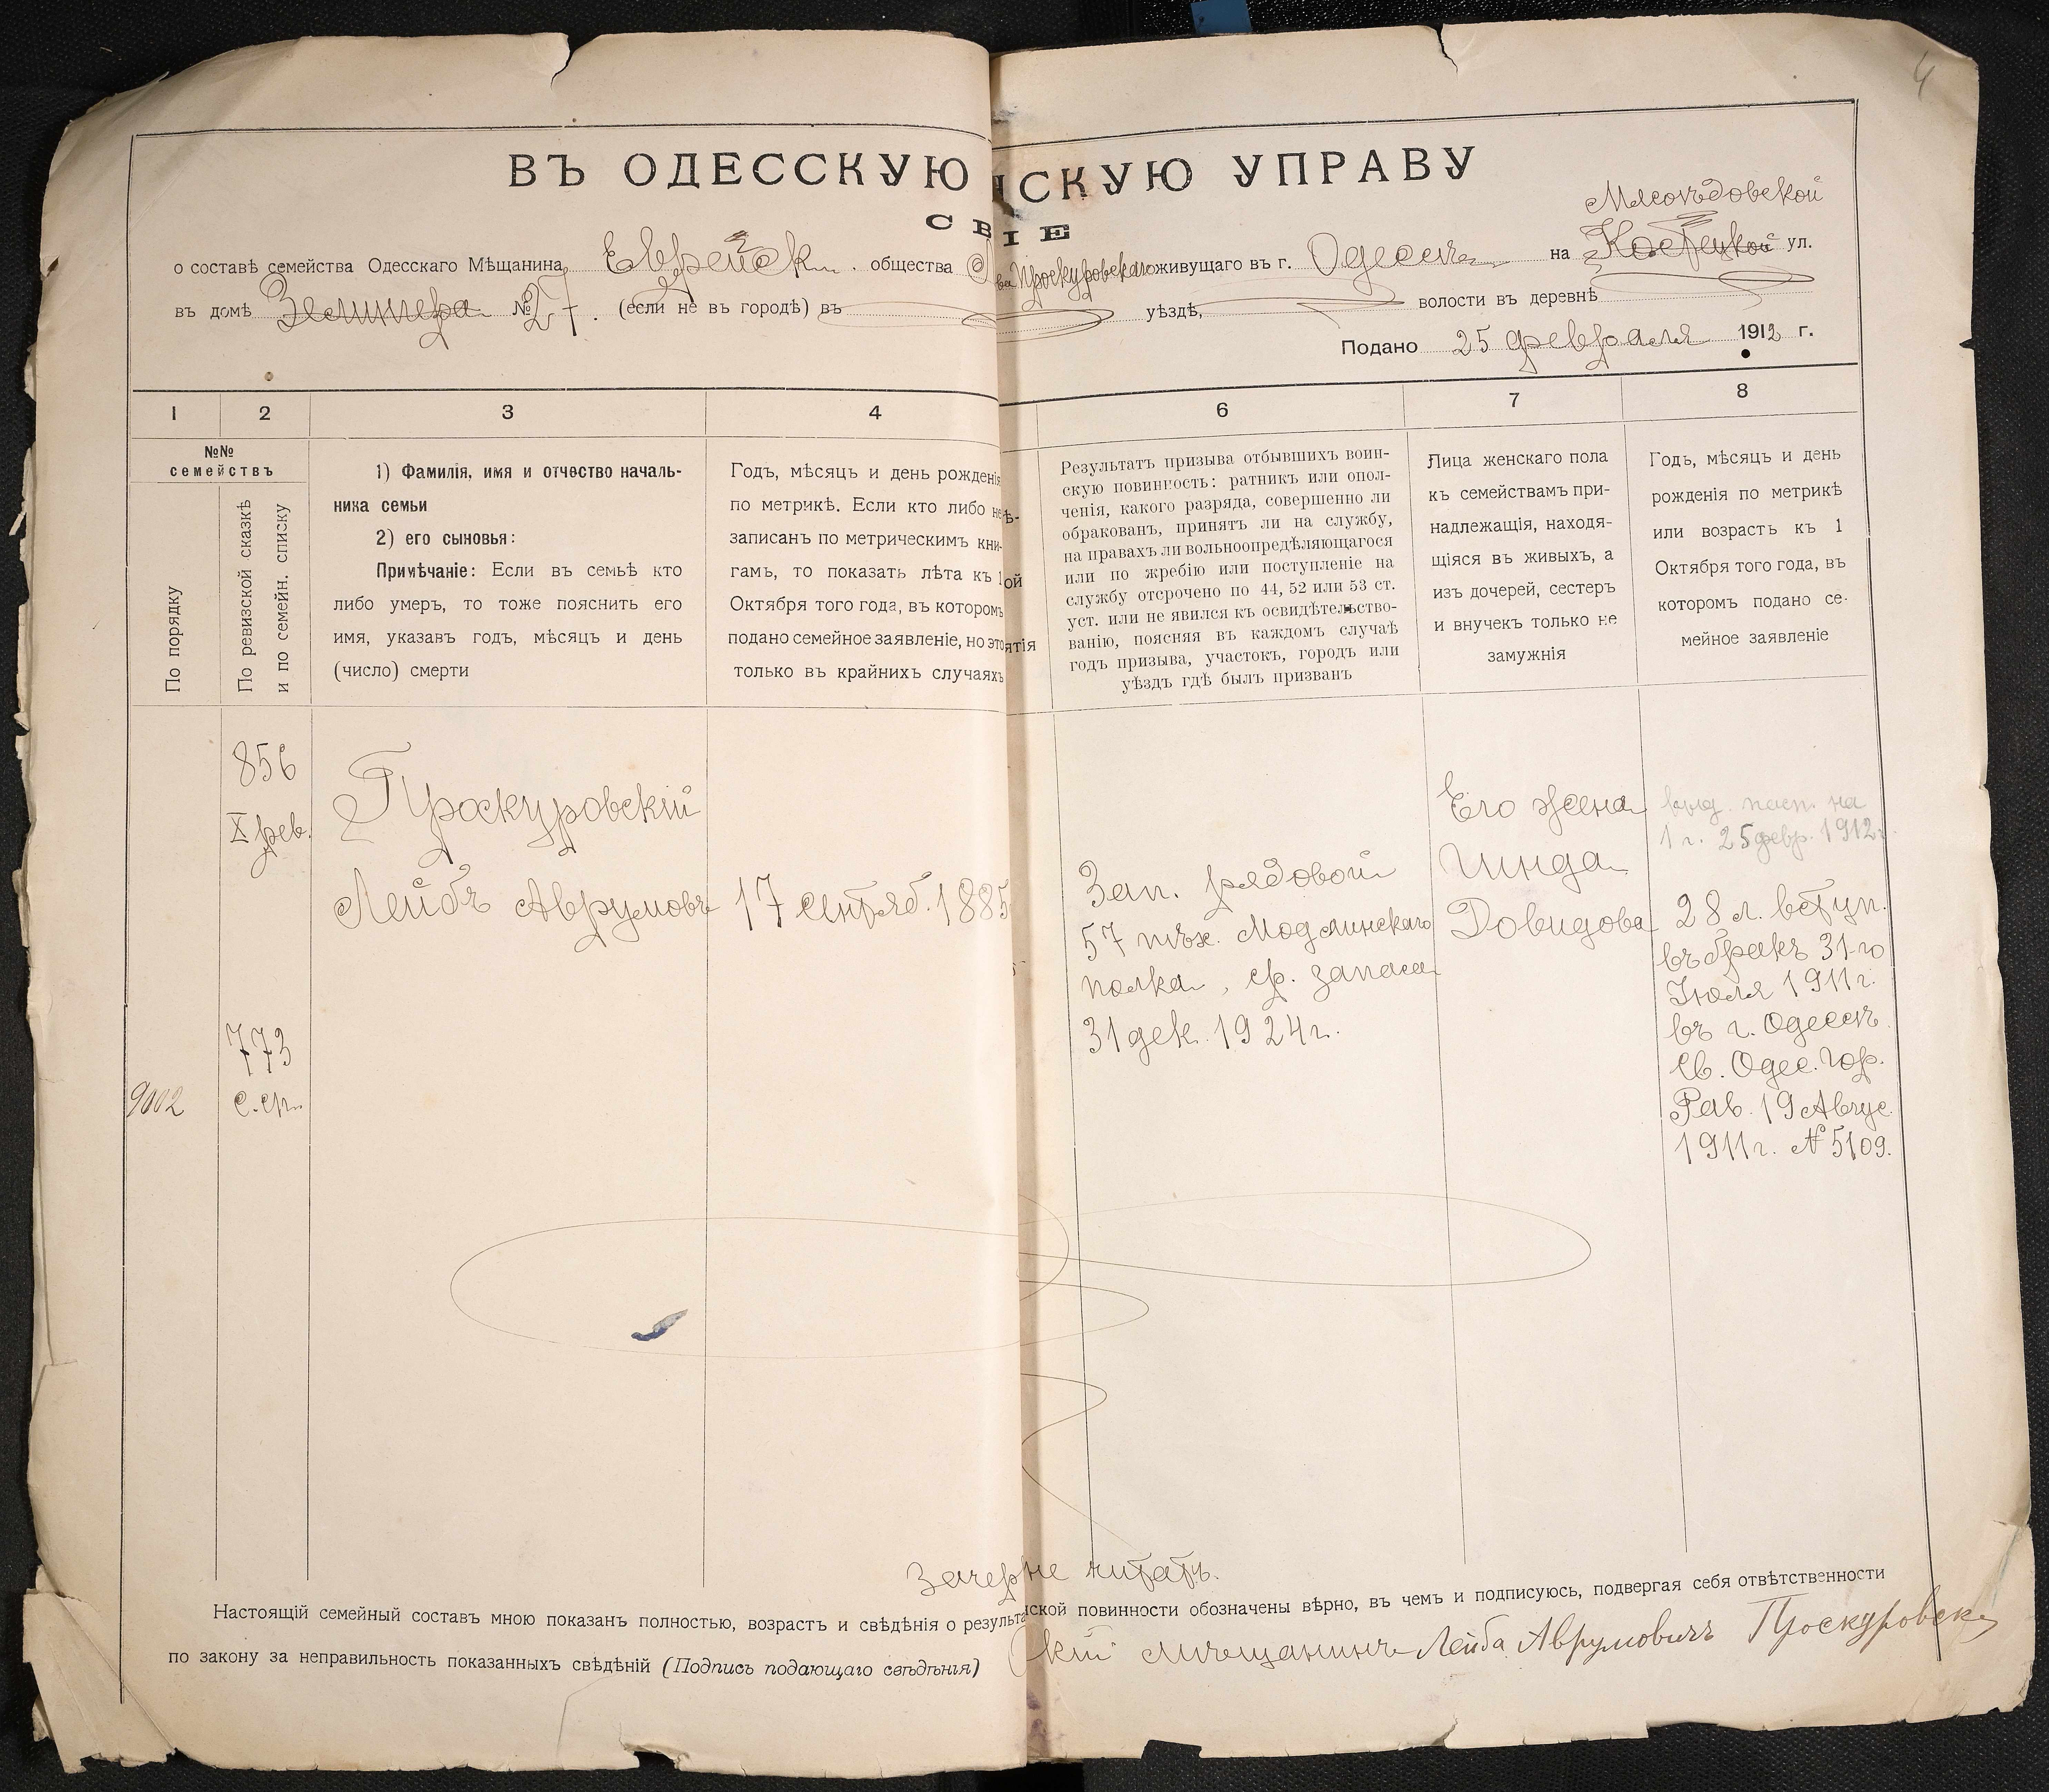 4
ВЪ ОДЕССКУЮ СКУЮ УПРАВУ
СВ ІЕ
Мясоѣдовской
о составѣ семейства Одесскаго Мѣщанина Еврейск. общества Проскуровскаго живущаго въ г. Одессѣ на Костецкой ул.
въ домѣ №27. (если не въ городѣ) въ уѣздѣ, волости въ деревнѣ
Подано 25 февраля 1912 г.
1 2 3 4 6 7 8
№№
семействъ
По порядку
По ревизской сказкѣ
и по семейн. списку
1) Фамилія, имя и отчество началь-
ника семьи
2) его сыновья:
Примѣчаніе: Если въ семьѣ кто
либо умеръ, то тоже пояснить его
имя, указавъ годъ, мѣсяцъ и день
(число) смерти
Годъ, мѣсяцъ и день рожденія
по метрикѣ. Если кто либо не
записанъ по метрическимъ кни-
гамъ, то показать лѣта къ 1
Октября того года, въ которомъ
подано семейное заявленіе, но это
только въ крайнихъ случаяхъ
ѣ-
ой
ятія
Результатъ призыва отбывшихъ воин-
скую повинность: ратникъ или опол-
ченія, какого разряда, совершенно ли
обракованъ, принятъ ли на службу,
на правахъ ли вольноопредѣляющагося
или по жребію или поступленіе на
службу отсрочено по 44, 52 или 53 ст.
уст. или не явился къ освидѣтельство-
ванію, поясняя въ каждомъ случаѣ
годъ призыва, участокъ, городъ или
уѣздъ гдѣ былъ призванъ
Лица женскаго пола
къ семействамъ при-
надлежащія, находя-
щіяся въ живыхъ, а
изъ дочерей, сестеръ
и внучекъ только не
замужнія
Годъ, мѣсяцъ и день
рожденія по метрикѣ
или возрастъ къ 1
Октября того года, въ
которомъ подано се-
мейное заявленіе
856
X рев.
773
с.сп.
9002
Проскуровскій
Лейбъ Аврумовъ
17 сентяб. 1885
Зап. рядовой
57 пѣх. Модлинскаго
полка, ср. запаса
31 дек. 1924г.
Его жена
Гинда
Довидова
выд. пасп. на
1 г. 25 февр. 1912г.
28 л. вступ.
въ бракъ 31-го
Іюля 1911 г.
въ г. Одессѣ
Св. Одес. Гор.
Рав. 19 Авгус.
1911г. №5109.
Зачерк не читать.
Настоящій семейный составъ мною показанъ полностью, возрастъ и свѣдѣнія о результа нской повинности обозначены вѣрно, въ чемъ и подписуюсь, подвергая себя отвѣтственности
по закону за неправильность показанныхъ свѣдѣній (Подпись подающаго свѣдѣнія) кій мѣщанинъ Лейба Аврумовичъ Проскуровск